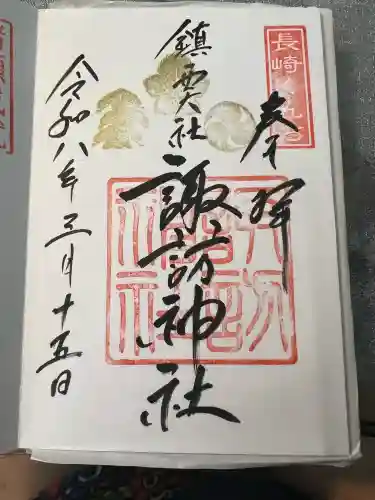 奉拝
長崎
鎮西大社
諏訪神社
令和八年三月十五日